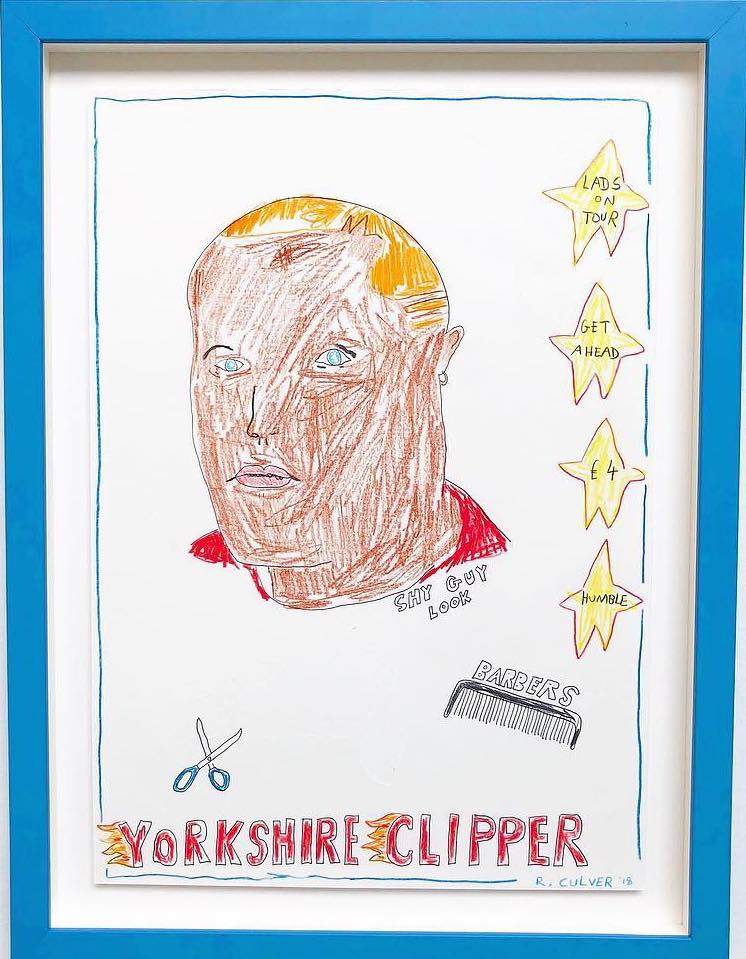 LADS
ON
TOUR
GET
AHEAD
£4
HUMBLE
SHY GUY
LOOK
BARBERS
YORKSHIRE CLIPPER
R. CULVER '18